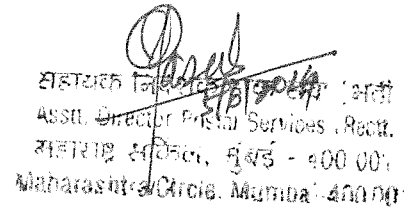 सहायक
Asstt. Director Postal Services (Rectt.
महाराष्ट्र सर्किल, मुंबई - 400 001
Maharashtra Circle, Mumbai-400 001